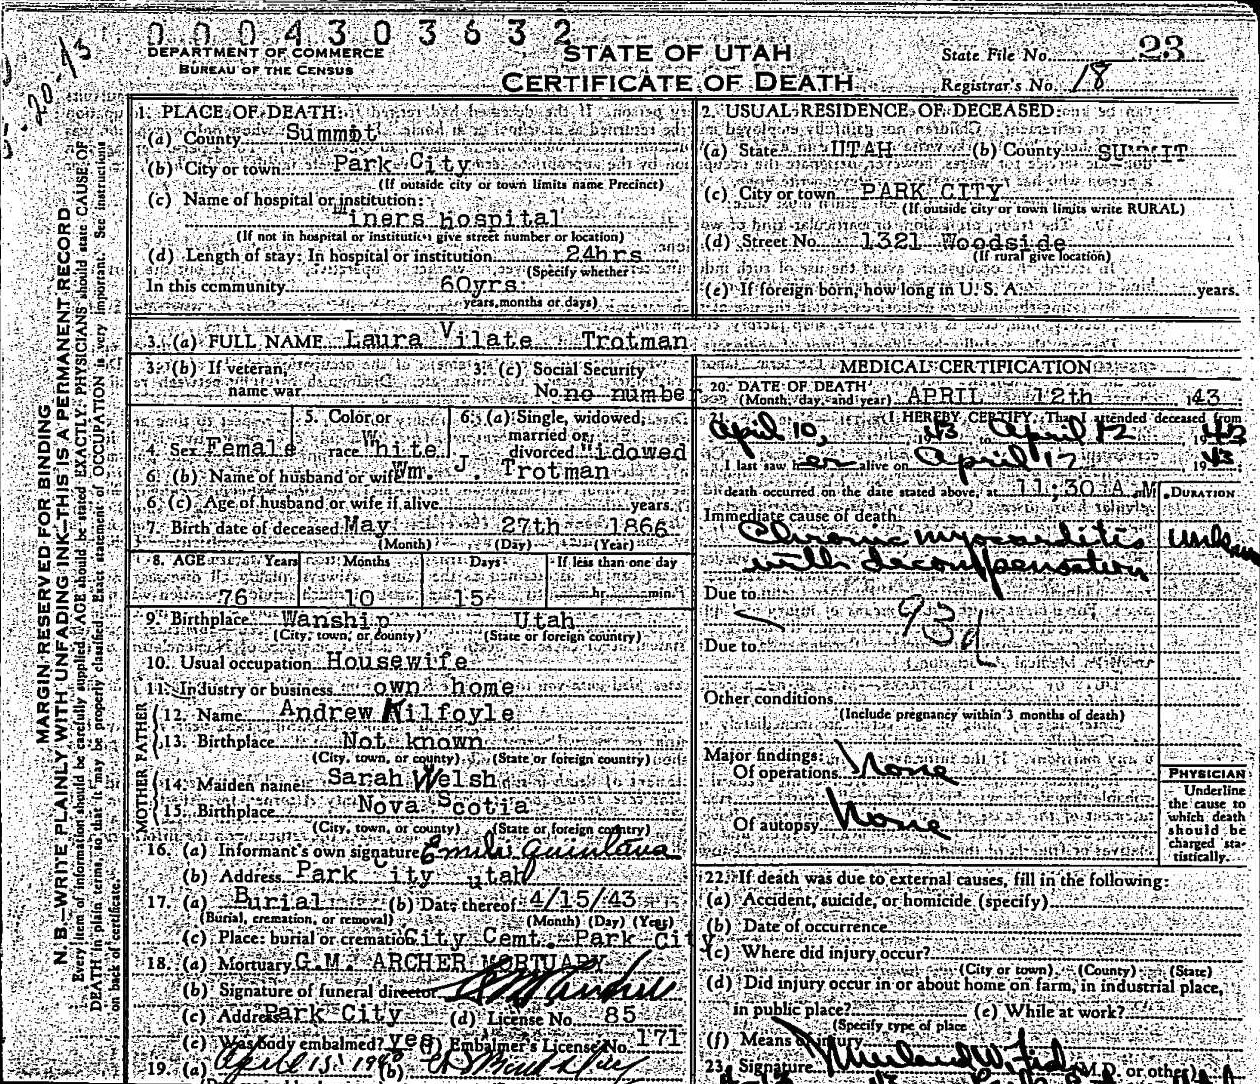 0 0 0 4 3 0 3 6 3 2
DEPARTMENT OF COMMERCE
BUREAU OF THE CENSUS
STATE OF UTAH
CERTIFICATE OF DEATH
State File No. 23
Registrar's No. 18
MARGIN RESERVED FOR BINDING
N. B.—WRITE PLAINLY WITH UNFADING INK—THIS IS A PERMANENT RECORD
Every item of information should be carefully supplied. AGE should be stated EXACTLY. PHYSICIANS should state CAUSE OF
DEATH in plain terms, so that it may be properly classified. Exact statement of OCCUPATION is very important. See instructions
on back of certificate.
1. PLACE OF DEATH:
(a) County Summit
(b) City or town Park City
(If outside city or town limits name Precinct)
(c) Name of hospital or institution:
Miners hospital
(If not in hospital or institution give street number or location)
(d) Length of stay: In hospital or institution 24hrs
(Specify whether
In this community 60yrs
years, months or days)
2. USUAL RESIDENCE OF DECEASED:
(a) State UTAH (b) County SUMMIT
(c) City or town PARK CITY
(If outside city or town limits write RURAL)
(d) Street No. 1321 Woodside
(If rural give location)
(e) If foreign born, how long in U. S. A. years.
3. (a) FULL NAME Laura Vilate Trotman
3. (b) If veteran,
name war
3. (c) Social Security
No. no number
4. Sex Female
5. Color or
race White
6. (a) Single, widowed,
married or
divorced Widowed
6. (b) Name of husband or wife Wm. J. Trotman
6. (c) Age of husband or wife if alive years.
7. Birth date of deceased May 27th 1866
(Month) (Day) (Year)
8. AGE Years Months Days If less than one day
76 10 15 hr. min.
9. Birthplace Wanship Utah
(City, town, or county) (State or foreign country)
10. Usual occupation Housewife
11. Industry or business own home
FATHER
12. Name Andrew Kilfoyle
13. Birthplace Not known
(City, town, or county) (State or foreign country)
MOTHER
14. Maiden name Sarah Welsh
15. Birthplace Nova Scotia
(City, town, or county) (State or foreign country)
16. (a) Informant's own signature Emile Quintana
(b) Address Park City Utah
17. (a) Burial (b) Date thereof 4/15/43
(Burial, cremation, or removal) (Month) (Day) (Year)
(c) Place: burial or cremation City Cemt. Park City
18. (a) Mortuary G.M. ARCHER MORTUARY
(b) Signature of funeral director
(c) Address Park City (d) License No. 85
(e) Was body embalmed? yes (f) Embalmer's License No. 171
19. (a) April 15, 1943 (b)
MEDICAL CERTIFICATION
20. DATE OF DEATH
(Month, day, and year) APRIL 12th 43
21. I HEREBY CERTIFY, That I attended deceased from
April 10, 1943 to April 12 1943
I last saw her alive on April 12 1943
death occurred on the date stated above, at 11;30 A M.
DURATION
Immediate cause of death
Chronic myocarditis
with decompensation
Due to
93d
Due to
Other conditions
(Include pregnancy within 3 months of death)
Major findings:
Of operations None
Of autopsy None
PHYSICIAN
Underline
the cause to
which death
should be
charged sta-
tistically.
22. If death was due to external causes, fill in the following:
(a) Accident, suicide, or homicide (specify)
(b) Date of occurrence
(c) Where did injury occur?
(City or town) (County) (State)
(d) Did injury occur in or about home on farm, in industrial place,
in public place? (e) While at work?
(Specify type of place
(f) Means of injury
23. Signature (M.D. or other)